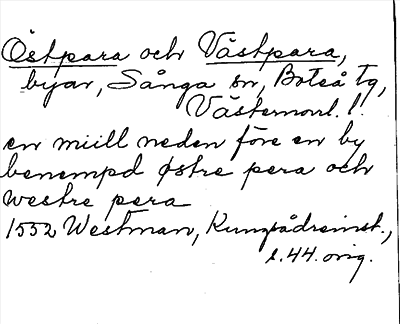 Östpara och Västpara,
byar, Sånga sn, Boteå tg,
Västernorrl. l.
en miill neden före en by
benempd østre pera och
westre pera
1552 Westman, Kungsådreinst.,
s. 44. orig.